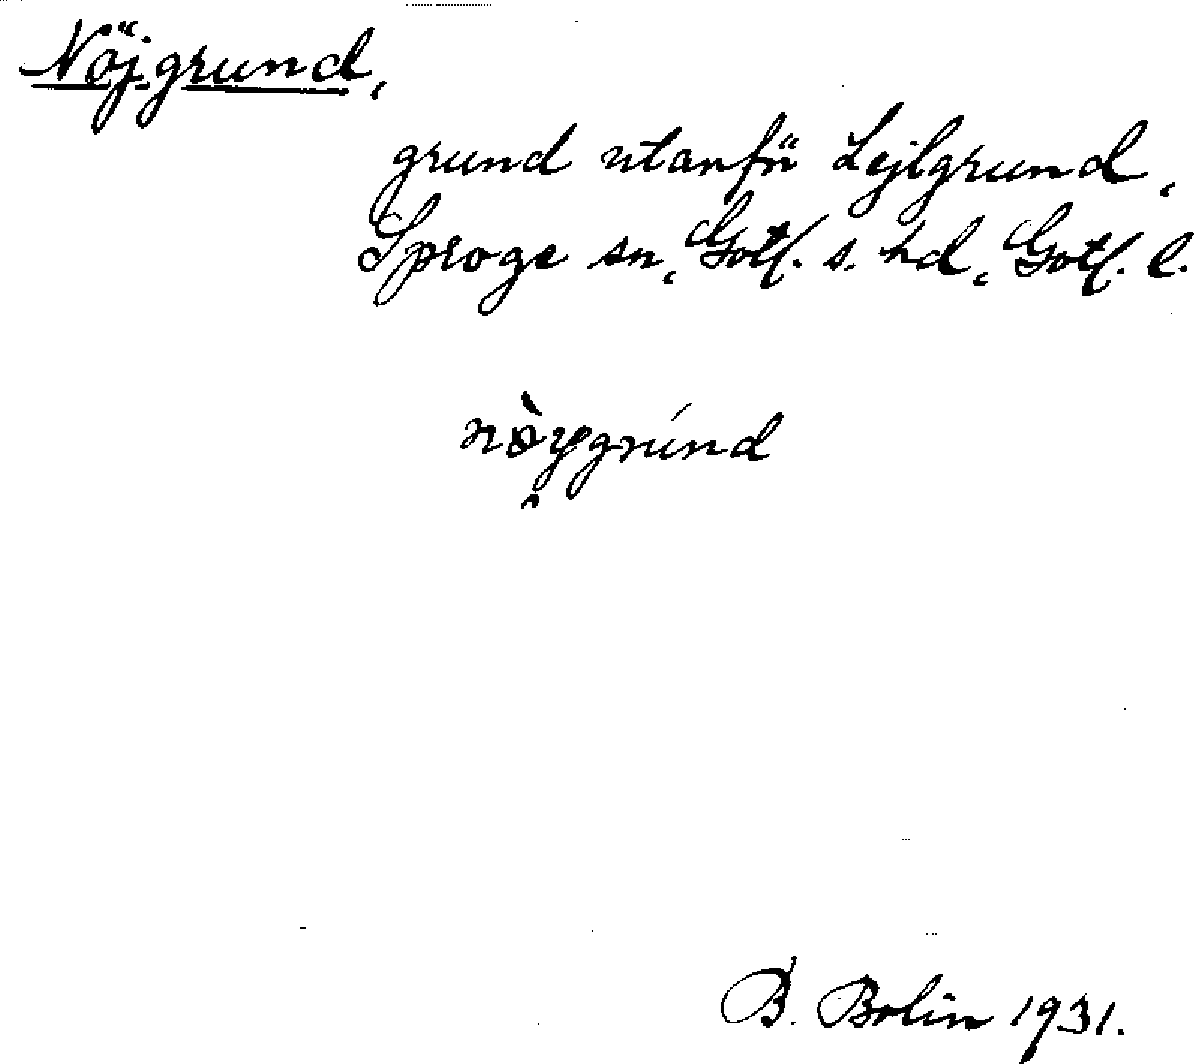 Nöjgrund,
grund utanför Lejlgrund,
Sproge sn, Gotl. s. hd, Gotl. l.
nòygrund
B. Bolin 1931.